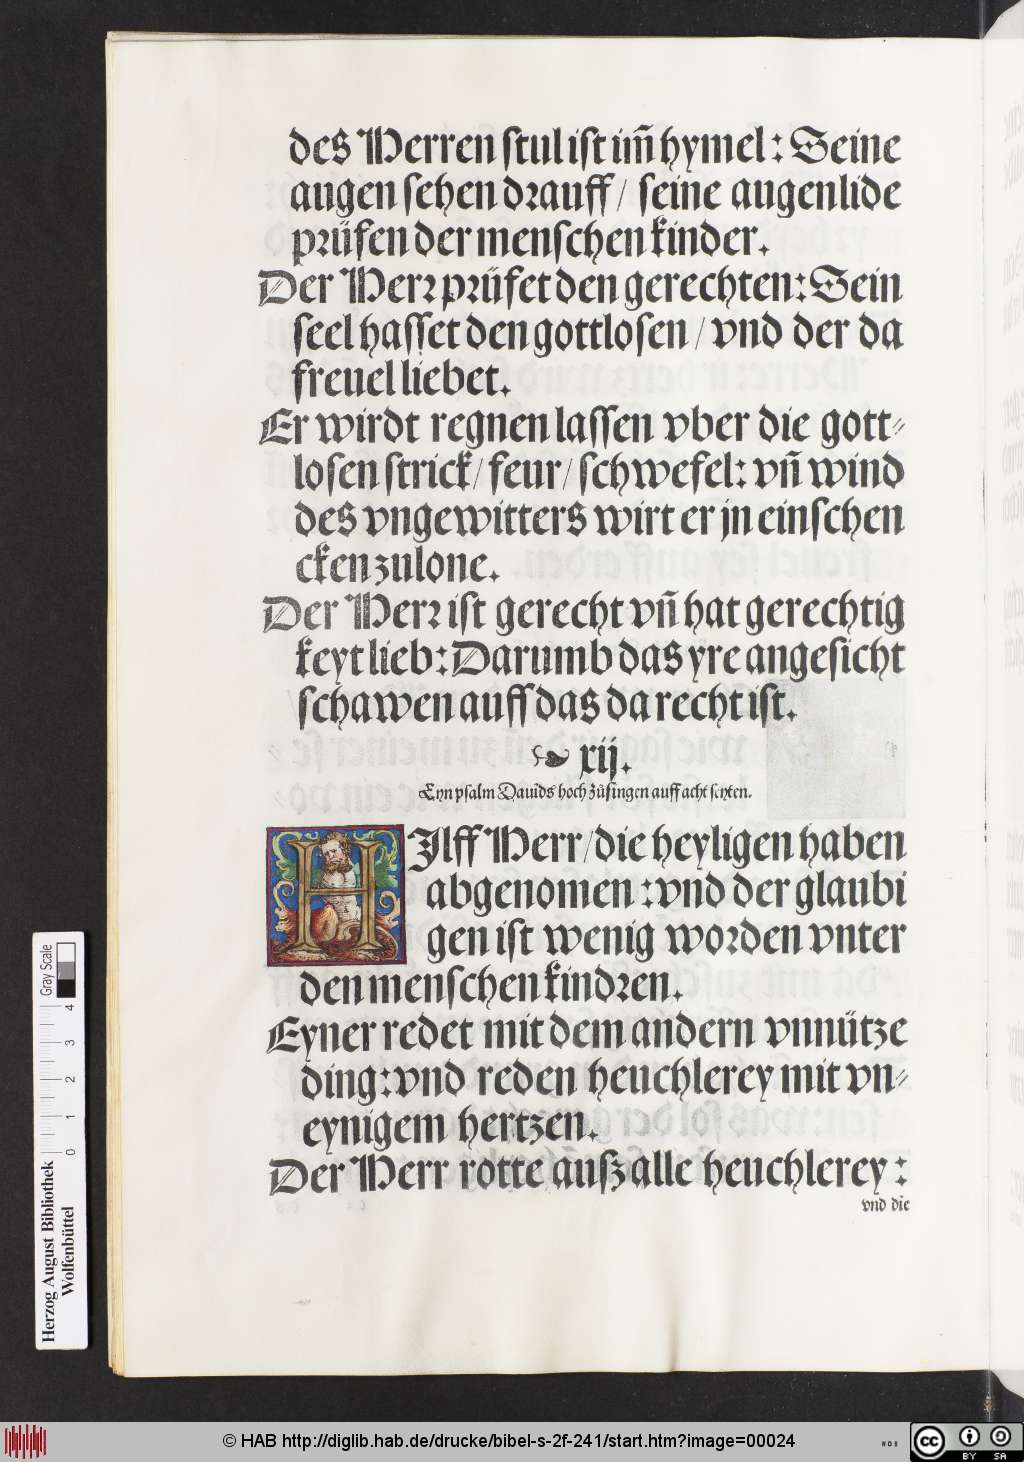 des Herren stul ist im̃ hymel: Seine
augen sehen drauff / seine augenlide
prüfen der menschen kinder.
Der Herr prüfet den gerechten: Sein
seel hasset den gottlosen / vnd der da
freuel liebet.
Er wirdt regnen lassen vber die gott⸗
losen strick / feur / schwefel: vñ wind
des vngewitters wirt er jn einschen
cken zu lone.
Der Herr ist gerecht vñ hat gerechtig
keyt lieb: Darumb das yre angesicht
schawen auff das da recht ist.
xij.
Eyn psalm Dauids hoch zůsingen auff acht seyten.
HJlff Herr / die heyligen haben
abgenomen : vnd der glaubi
gen ist wenig worden vnter
den menschen kindren.
Eyner redet mit dem andern vnnütze
ding: vnd reden heuchlerey mit vn⸗
eynigem hertzen.
Der Herr rotte außz alle heuchlerey :
vnd die
Herzog August Bibliothek
Wolfenbüttel
0 1 2 3 4
Gray Scale
© HAB http://diglib.hab.de/drucke/bibel-s-2f-241/start.htm?image=00024
WDB
cc
BY SA